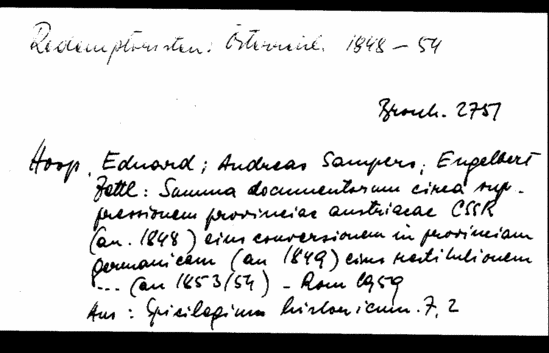 Redemptoristen: Österreich. 1848 – 54
Brosch. 2751
Hosp, Eduard; Andreas Sampers; Engelbert
Zettl: Summa documentorum circa sup-
pressionem provinciae austriacae CSSR
(an. 1848) eius conversionem in provinciam
germanicam (an 1849) eius restitutionem
... (an 1853/54) – Rom 1959
Aus: Spicilegium historicum. 7, 2